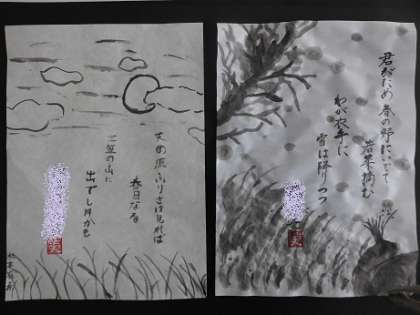 君がため 春の野にいでて
若菜摘む
わが衣手に
雪は降りつつ
天の原ふりさけ見れば
春日なる
三笠の山に
出でし月かも